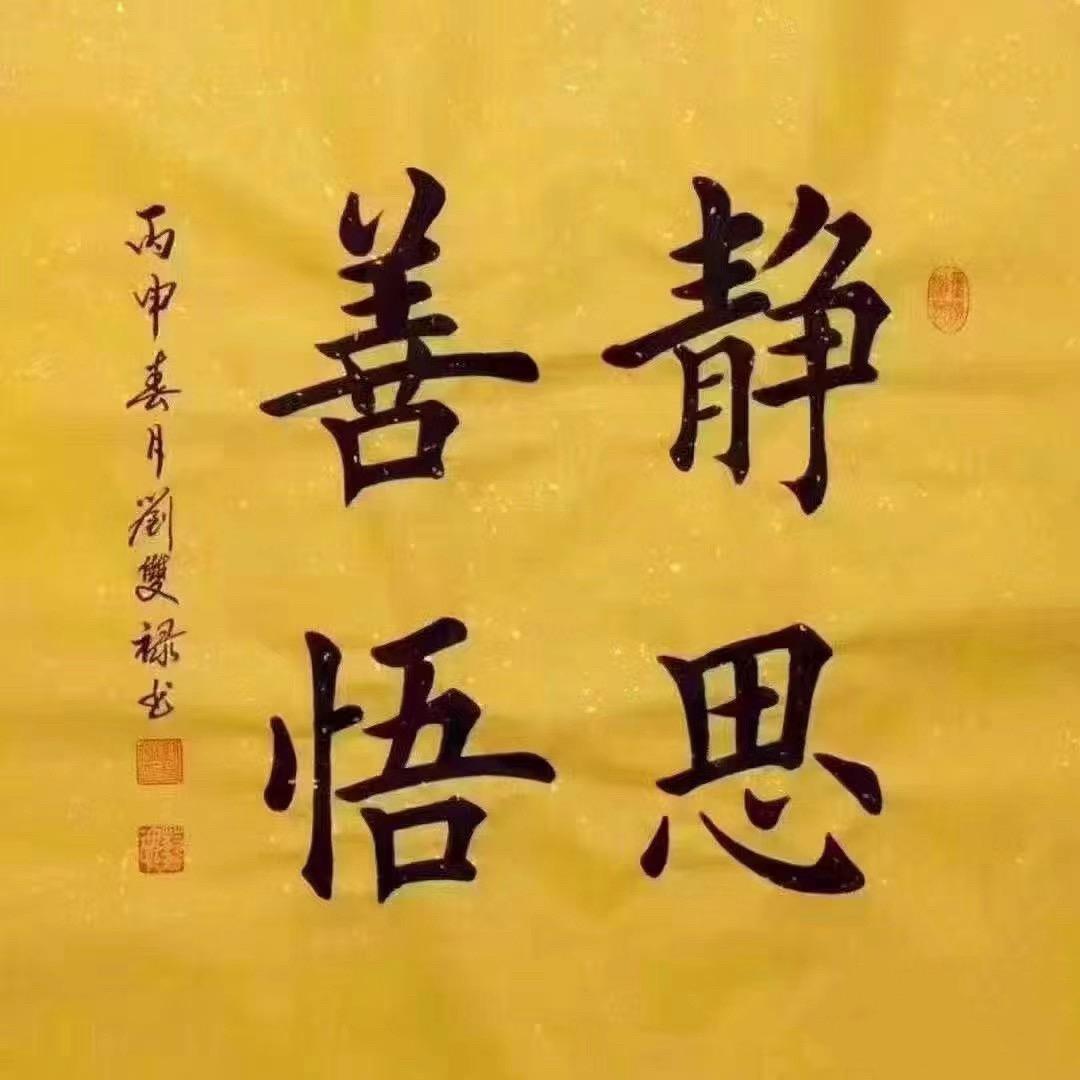 静思
善悟
丙申春月劉雙禄书